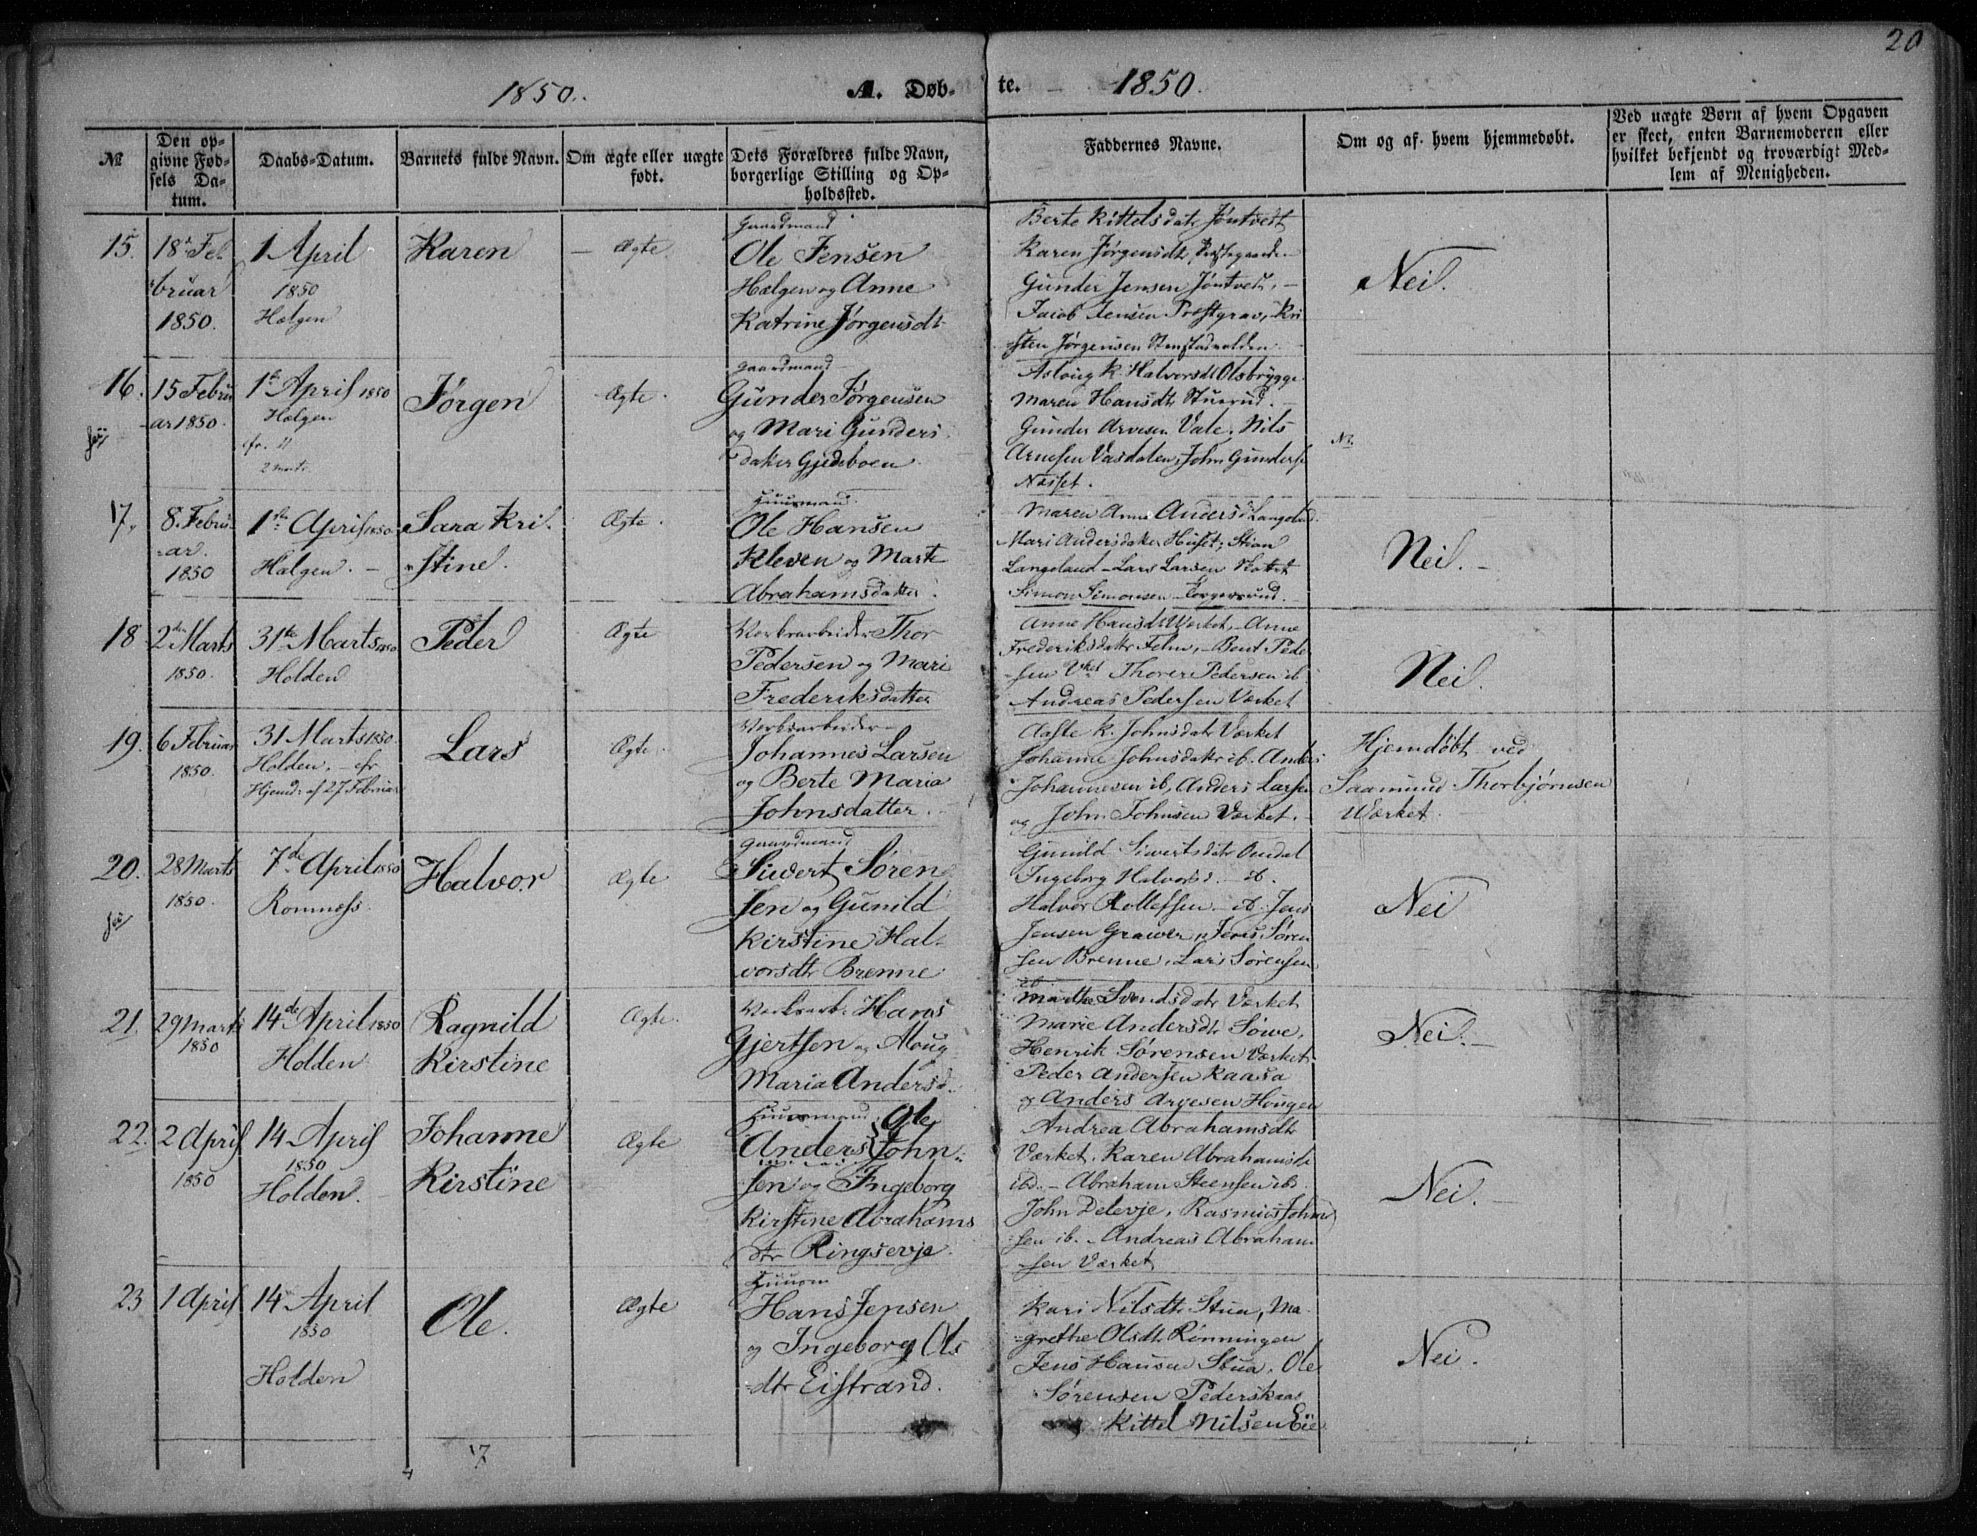 20
1850. A. Døb- te. 1850.
№
Den op-
givne Fød-
sels Da-
tum.
Daabs-Datum.
Barnets fulde Navn.
Om ægte eller uægte
født.
Dets Forældres fulde Navn,
borgerlige Stilling og Op-
holdssted.
Faddernes Navne.
Om og af hvem hjemmedøbt.
Ved uægte Børn af hvem Opgaven
er skeet, enten Barnemoderen eller
hvilket bekjendt og troværdigt Med-
lem af Menigheden.
15.
18de Fe-
bruar
1850.
1 April
1850
Hælgen
Karen
Ægte.
Gaardmand
Ole Jensen
Hælgen og Anne
Katrine Jørgensdt
Berte Kittelsdatr Jøntvedt
Karen Jørgensdtr
Gunder Jensen Jøntvedt, -
Jacob Jensen Præstgrav, Kri
sten Jørgensen
Nei.
16.
15 Febru
ar 1850.
1ste April 1850
Hælgen
fr.
2 Marts
Jørgen
Ægte.
Gaardmand
Gunder Jørgensen
og Mari Gunders
datter Gjedeboen
Aslaug K. Halvorsdt Olsbrygge
Maren Hansdtr
Gunder Arvesen Vale. Nils
Arnesen Vasdalen, John Gunders
Næset.
N.
17.
8. Febru-
ar.
1850
1ste April 1850
Hælgen. -
Sara Kri-
stine.
Ægte.
Huusmand
Ole Hansen
Kleven og Marte
Abrahamsdatter.
Maren Anne Andersd Langelud
Mari Andersdater Huset, Stian
Langeland - Lars Larsen
Simon Simonsen
Neil. -
18
2de Marts
1850.
31te Marts 1850
Holden
Peder
Ægte
Værksarbeider Thor
Pedersen og Mari
Frederiksdatter
Anne Hansdt Værket, - Anne
Frederiksdatr Fehn, - Bent Peder
sen Vket Thorer Pedersen ib
Andreas Pedersen Værket
Neil.
19.
6 Februar
1850.
31 Marts 1850.
Holden. - fr
Hjemd. af 27 Februar
Lars
Ægte.
Værksarbeider -
Johannes Larsen
og Berte Maria
Johnsdatter.
Aaste K. Johnsdatr Værket
Johanne Johnsdatr ib. Anders
Johannesen ib, Anders Larsen
og John Johnsen Værket. -
Hjemdøbt ved
Saamund Thorbjørnsen
Værket.
20.
28 Marts
1850.
7de April 1850
Romnæs.
Halvor
Ægte
Gaardmand
Siwert Søren
sen og Gunild
Kirstine Hal-
vorsdtr Brenne
Gunild Siwertsdatr Omdal
Ingeborg Halvorsd. - ib.
Halvor Rollefsen - ib. Jens
Jensen Grawer, Jens Søren
sen Brenne, Lars Sørensen
ib
Nei
21.
29 Marts
1850
14de April 1850
Holden
Ragnild
Kirstine
Ægte.
Værksarb. Hans
Gjertsen og Aloug
Maria Andersd.
Marthe Svendsdatr Værket
Marie Andersdt Søwe,
Henrik Sørensen Værket
Peder Andersen Kaasa
og Anders Arvesen Hougen
Nei. -
22.
2 April
1850
14 April
1850
Holden.
Johanne
Kirstine
Ægte
Huusmand. Ole
Anders John-
sen og Ingeborg
Kirstine Abrahams
dtr Ringsevje.
Andrea Abrahamsdtr
Værket. Karen Abrahamsdt
ibd. - Abraham Steensen ibd.
John Delevje, Rasmus John
sen ib. - Andreas Abraham
sen Værket
Nei. -
23
1 April
14 April
1850
Holden
Ole.
Ægte
Huusm
Hans Jensen
og Ingeborg Ols
dtr Eistrand.
Kari Nilsdtr Stua, Ma-
grethe Olsdtr Rønningen
Jens Hansen Stua. Ole
Sørensen Pederskaas
Kittel Nilsen Eie
Nei.
17